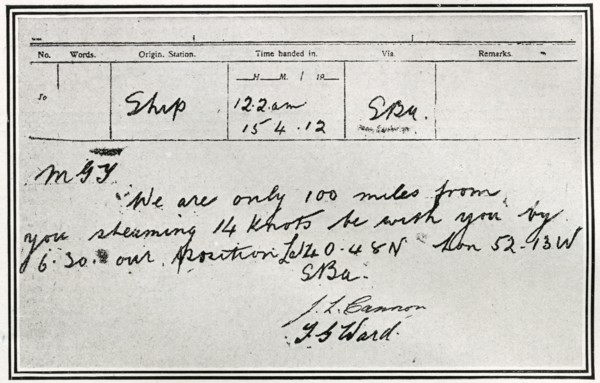 No. Words. Origin. Station. Time handed in. Via. Remarks.
H. M. / 19
To Ship 12.2.am SBa.
15.4.12
MGY
We are only 100 miles from
you steaming 14 Knots be with you by
6.30. our position Lat 40.48N Lon 52.13W
SBa.
J. L. Cannon
T G Ward.